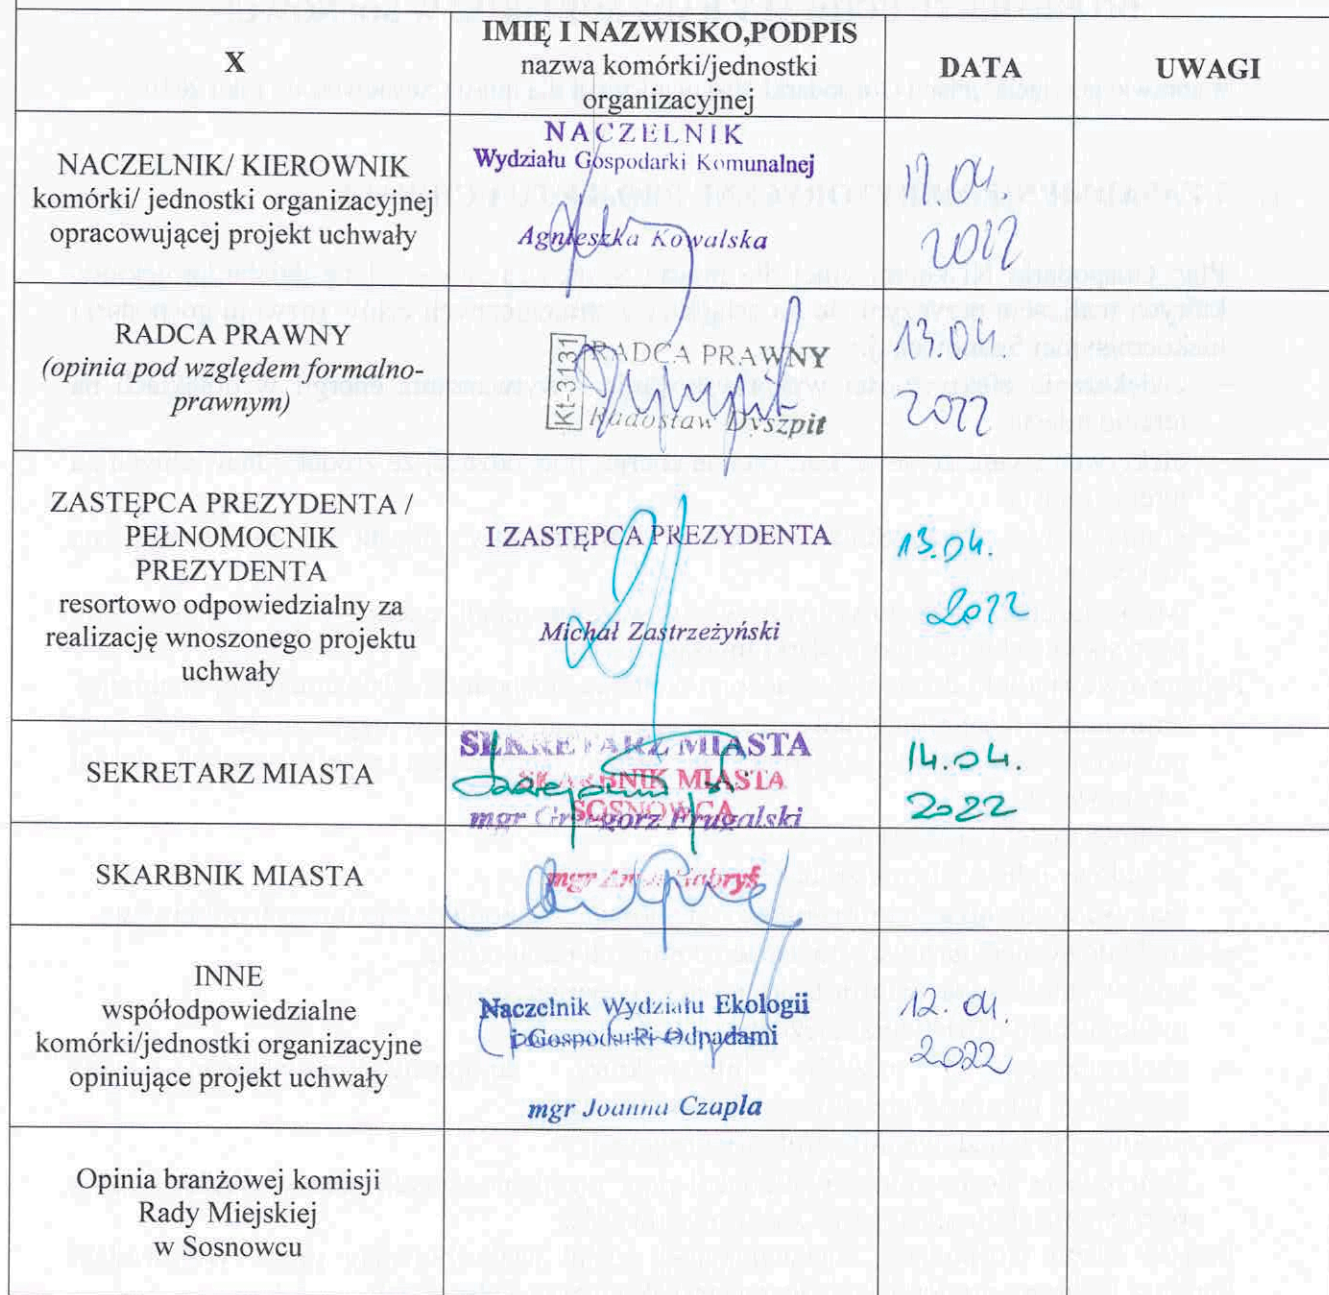 X
IMIĘ I NAZWISKO,PODPIS
nazwa komórki/jednostki
organizacyjnej
DATA
UWAGI
NACZELNIK/ KIEROWNIK
komórki/ jednostki organizacyjnej
opracowującej projekt uchwały
NACZELNIK
Wydziału Gospodarki Komunalnej
Agnieszka Kowalska
12.04
2022
RADCA PRAWNY
(opinia pod względem formalno-
prawnym)
Kt-3131
RADCA PRAWNY
Radosław Dyszpit
13.04.
2022
ZASTĘPCA PREZYDENTA /
PEŁNOMOCNIK
PREZYDENTA
resortowo odpowiedzialny za
realizację wnoszonego projektu
uchwały
I ZASTĘPCA PREZYDENTA
Michał Zastrzeżyński
13.04.
2022
SEKRETARZ MIASTA
SEKRETARZ MIASTA
SKARBNIK MIASTA
SOSNOWCA
mgr Grzegorz Frugalski
14.04.
2022
SKARBNIK MIASTA
mgr
INNE
współodpowiedzialne
komórki/jednostki organizacyjne
opiniujące projekt uchwały
Naczelnik Wydziału Ekologii
i Gospodarki Odpadami
mgr Joanna Czapla
12.04.
2022
Opinia branżowej komisji
Rady Miejskiej
w Sosnowcu